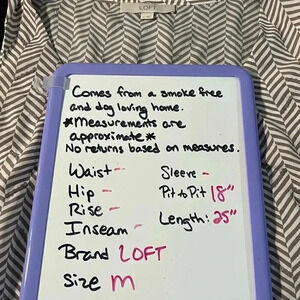 LOFT
Comes from a smoke free
and dog loving home.
*Measurements are
approximate*
No returns based on measures.
Waist -
Hip -
Rise -
Inseam -
Sleeve -
Pit to Pit 18"
Length: 25"
Brand LOFT
Size M